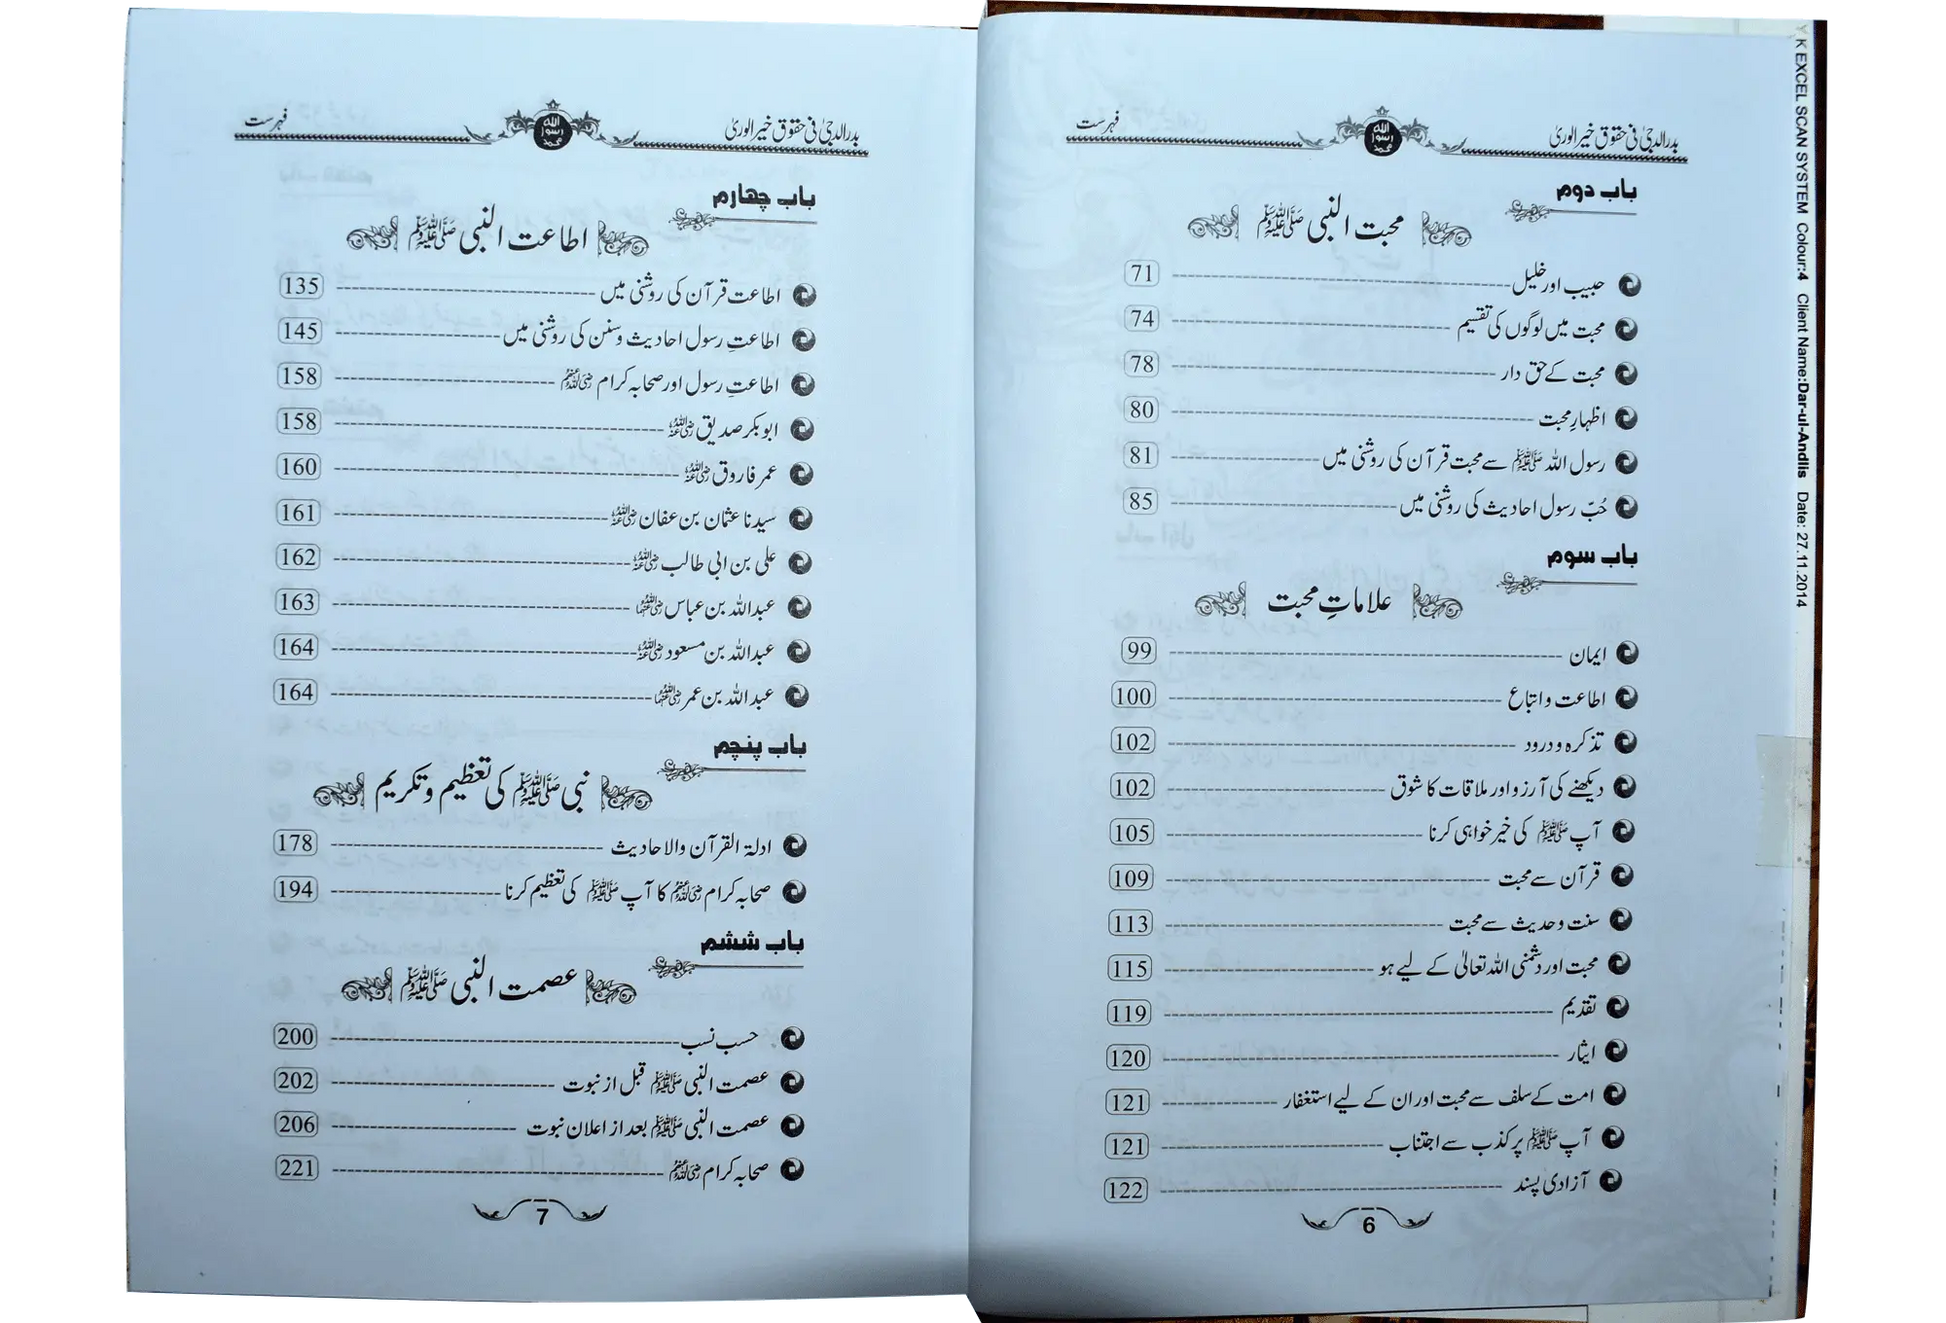 بدر الدجیٰ فی حقوق خیر الوریٰ
فہرست
باب دوم
محبت النبی ﷺ
حبیب اور خلیل 71
محبت میں لوگوں کی تقسیم 74
محبت کے حق دار 78
اظہارِ محبت 80
رسول اللہ ﷺ سے محبت قرآن کی روشنی میں 81
حُبّ رسول احادیث کی روشنی میں 85
باب سوم
علاماتِ محبت
ایمان 99
اطاعت و اتباع 100
تذکرہ و درود 102
دیکھنے کی آرزو اور ملاقات کا شوق 102
آپ ﷺ کی خیر خواہی کرنا 105
قرآن سے محبت 109
سنت و حدیث سے محبت 113
محبت اور دشمنی اللہ تعالیٰ کے لیے ہو 115
تقدیم 119
ایثار 120
امت کے سلف سے محبت اور ان کے لیے استغفار 121
آپ ﷺ پر کذب سے اجتناب 121
آزادی پسند 122
6
Y K EXCEL SCAN SYSTEM Colour:4 Client Name:Dar-ul-Andlis Date: 27.11.2014
بدر الدجیٰ فی حقوق خیر الوریٰ
فہرست
باب چہارم
اطاعت النبی ﷺ
اطاعت قرآن کی روشنی میں 135
اطاعتِ رسول احادیث و سنن کی روشنی میں 145
اطاعتِ رسول اور صحابہ کرام رضی اللہ عنہم 158
ابوبکر صدیق رضی اللہ عنہ 158
عمر فاروق رضی اللہ عنہ 160
سیدنا عثمان بن عفان رضی اللہ عنہ 161
علی بن ابی طالب رضی اللہ عنہ 162
عبداللہ بن عباس رضی اللہ عنہما 163
عبداللہ بن مسعود رضی اللہ عنہ 164
عبداللہ بن عمر رضی اللہ عنہما 164
باب پنجم
نبی ﷺ کی تعظیم و تکریم
ادلۃ القرآن والاحادیث 178
صحابہ کرام رضی اللہ عنہم کا آپ ﷺ کی تعظیم کرنا 194
باب ششم
عصمت النبی ﷺ
حسب نسب 200
عصمت النبی ﷺ قبل از نبوت 202
عصمت النبی ﷺ بعد از اعلان نبوت 206
صحابہ کرام رضی اللہ عنہم 221
7